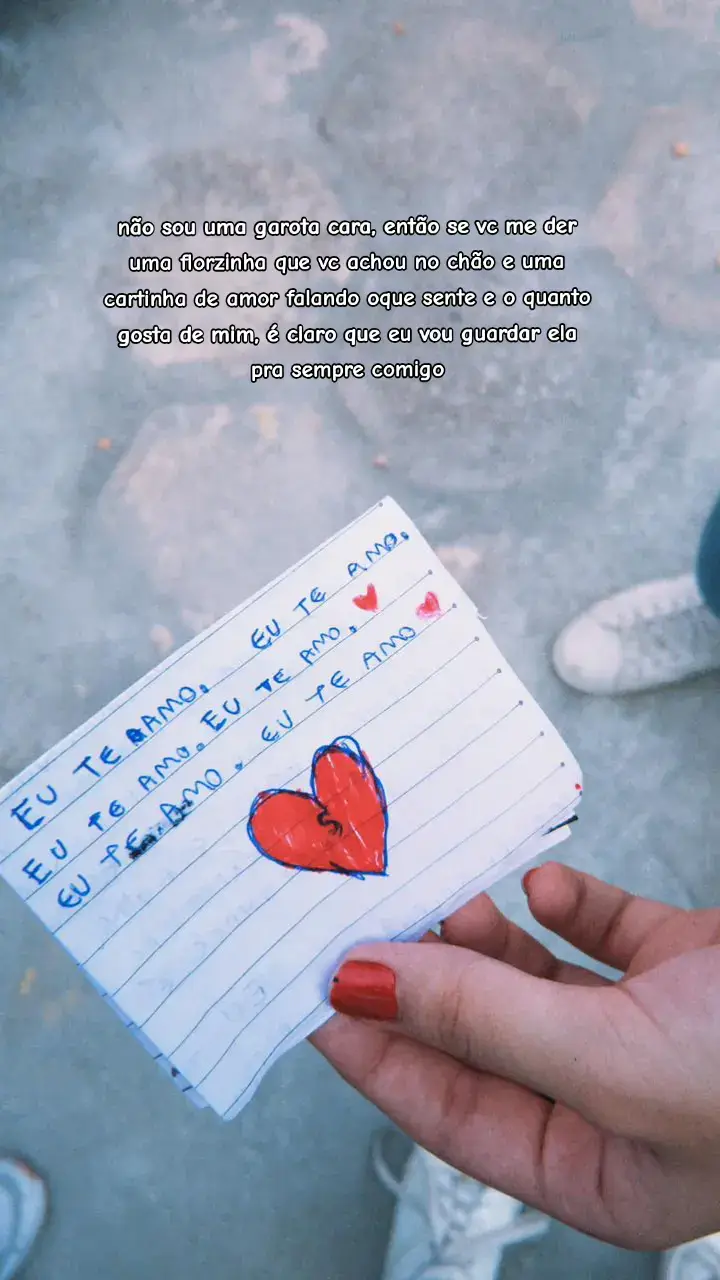 não sou uma garota cara, então se vc me der
uma florzinha que vc achou no chão e uma
cartinha de amor falando oque sente e o quanto
gosta de mim, é claro que eu vou guardar ela
pra sempre comigo
EU TE AMO. EU TE AMO.
EU TE AMO. EU TE AMO.
EU TE AMO. EU TE AMO
S